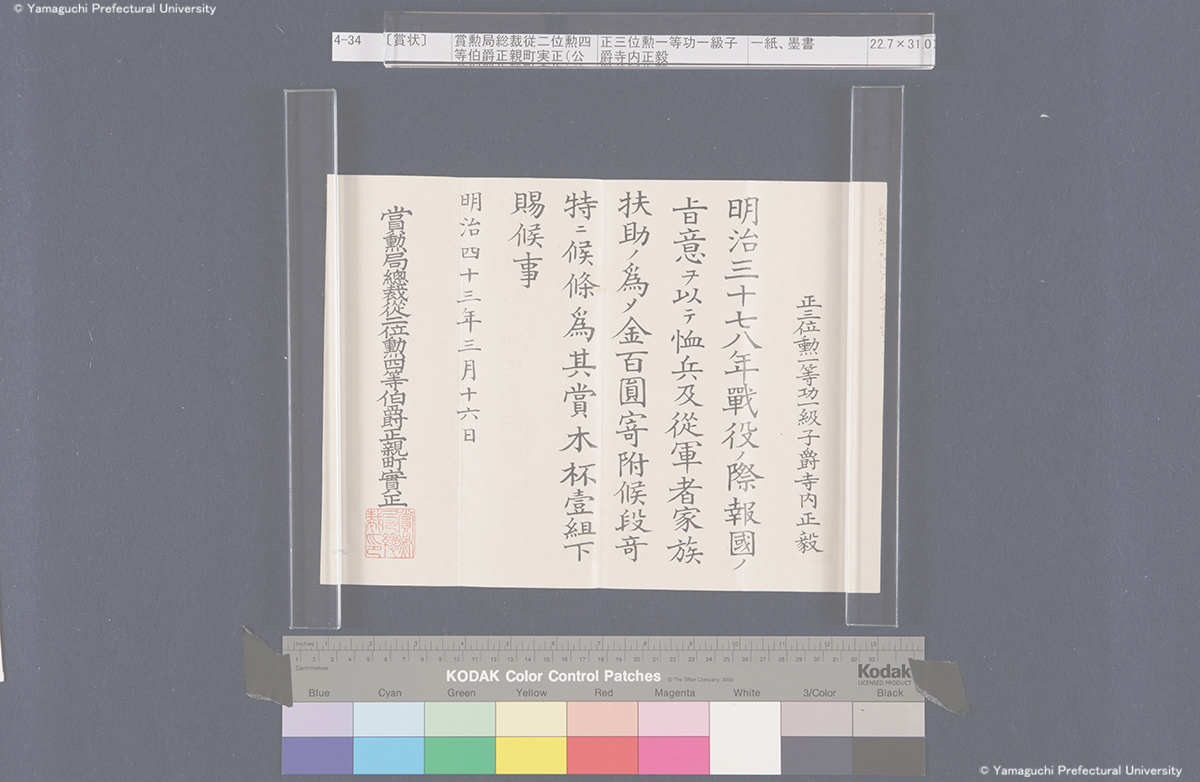 © Yamaguchi Prefectural University
4-34
〔賞状〕
賞勲局総裁従二位勲四
等伯爵正親町実正(公
正三位勲一等功一級子
爵寺内正毅
一紙、墨書
22.7×31.0
正三位勲一等功一級子爵寺内正毅
明治三十七八年戰役ノ際報國ノ
旨意ヲ以テ恤兵及從軍者家族
扶助ノ爲メ金百圓寄附候段竒
特ニ候條爲其賞木杯壹組下
賜候事
明治四十三年三月十六日
賞勳局總裁從二位勳四等伯爵正親町實正
Inches 1 2 3 4 5 6 7 8 9 10 11 12 13
1 2 3 4 5 6 7 8 9 10 11 12 13 14 15 16 17 18 19 20 21 22 23 24 25 26 27 28 29 30 31 32 33
Centimetres
KODAK Color Control Patches
© The Tiffen Company, 2000
Kodak
LICENSED PRODUCT
Blue Cyan Green Yellow Red Magenta White 3/Color Black
© Yamaguchi Prefectural University